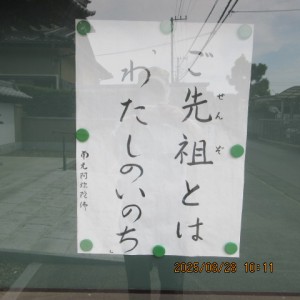 ご先祖とは
せんぞ
わたしのいのち
南无阿弥陀佛
2025/08/28 10:11